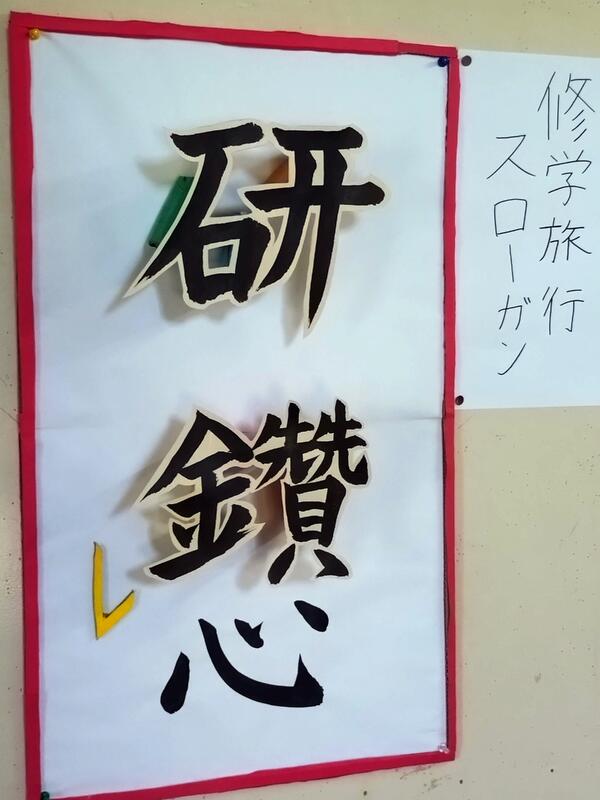 修学旅行
スローガン
研鑽レ心